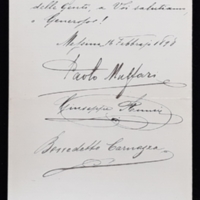 delle Genti, a Voi salutiamo
o Generosi!
Messina 18 Febbrajo 1878
Paolo Maffari
Giuseppe
Benedetto Carnazza